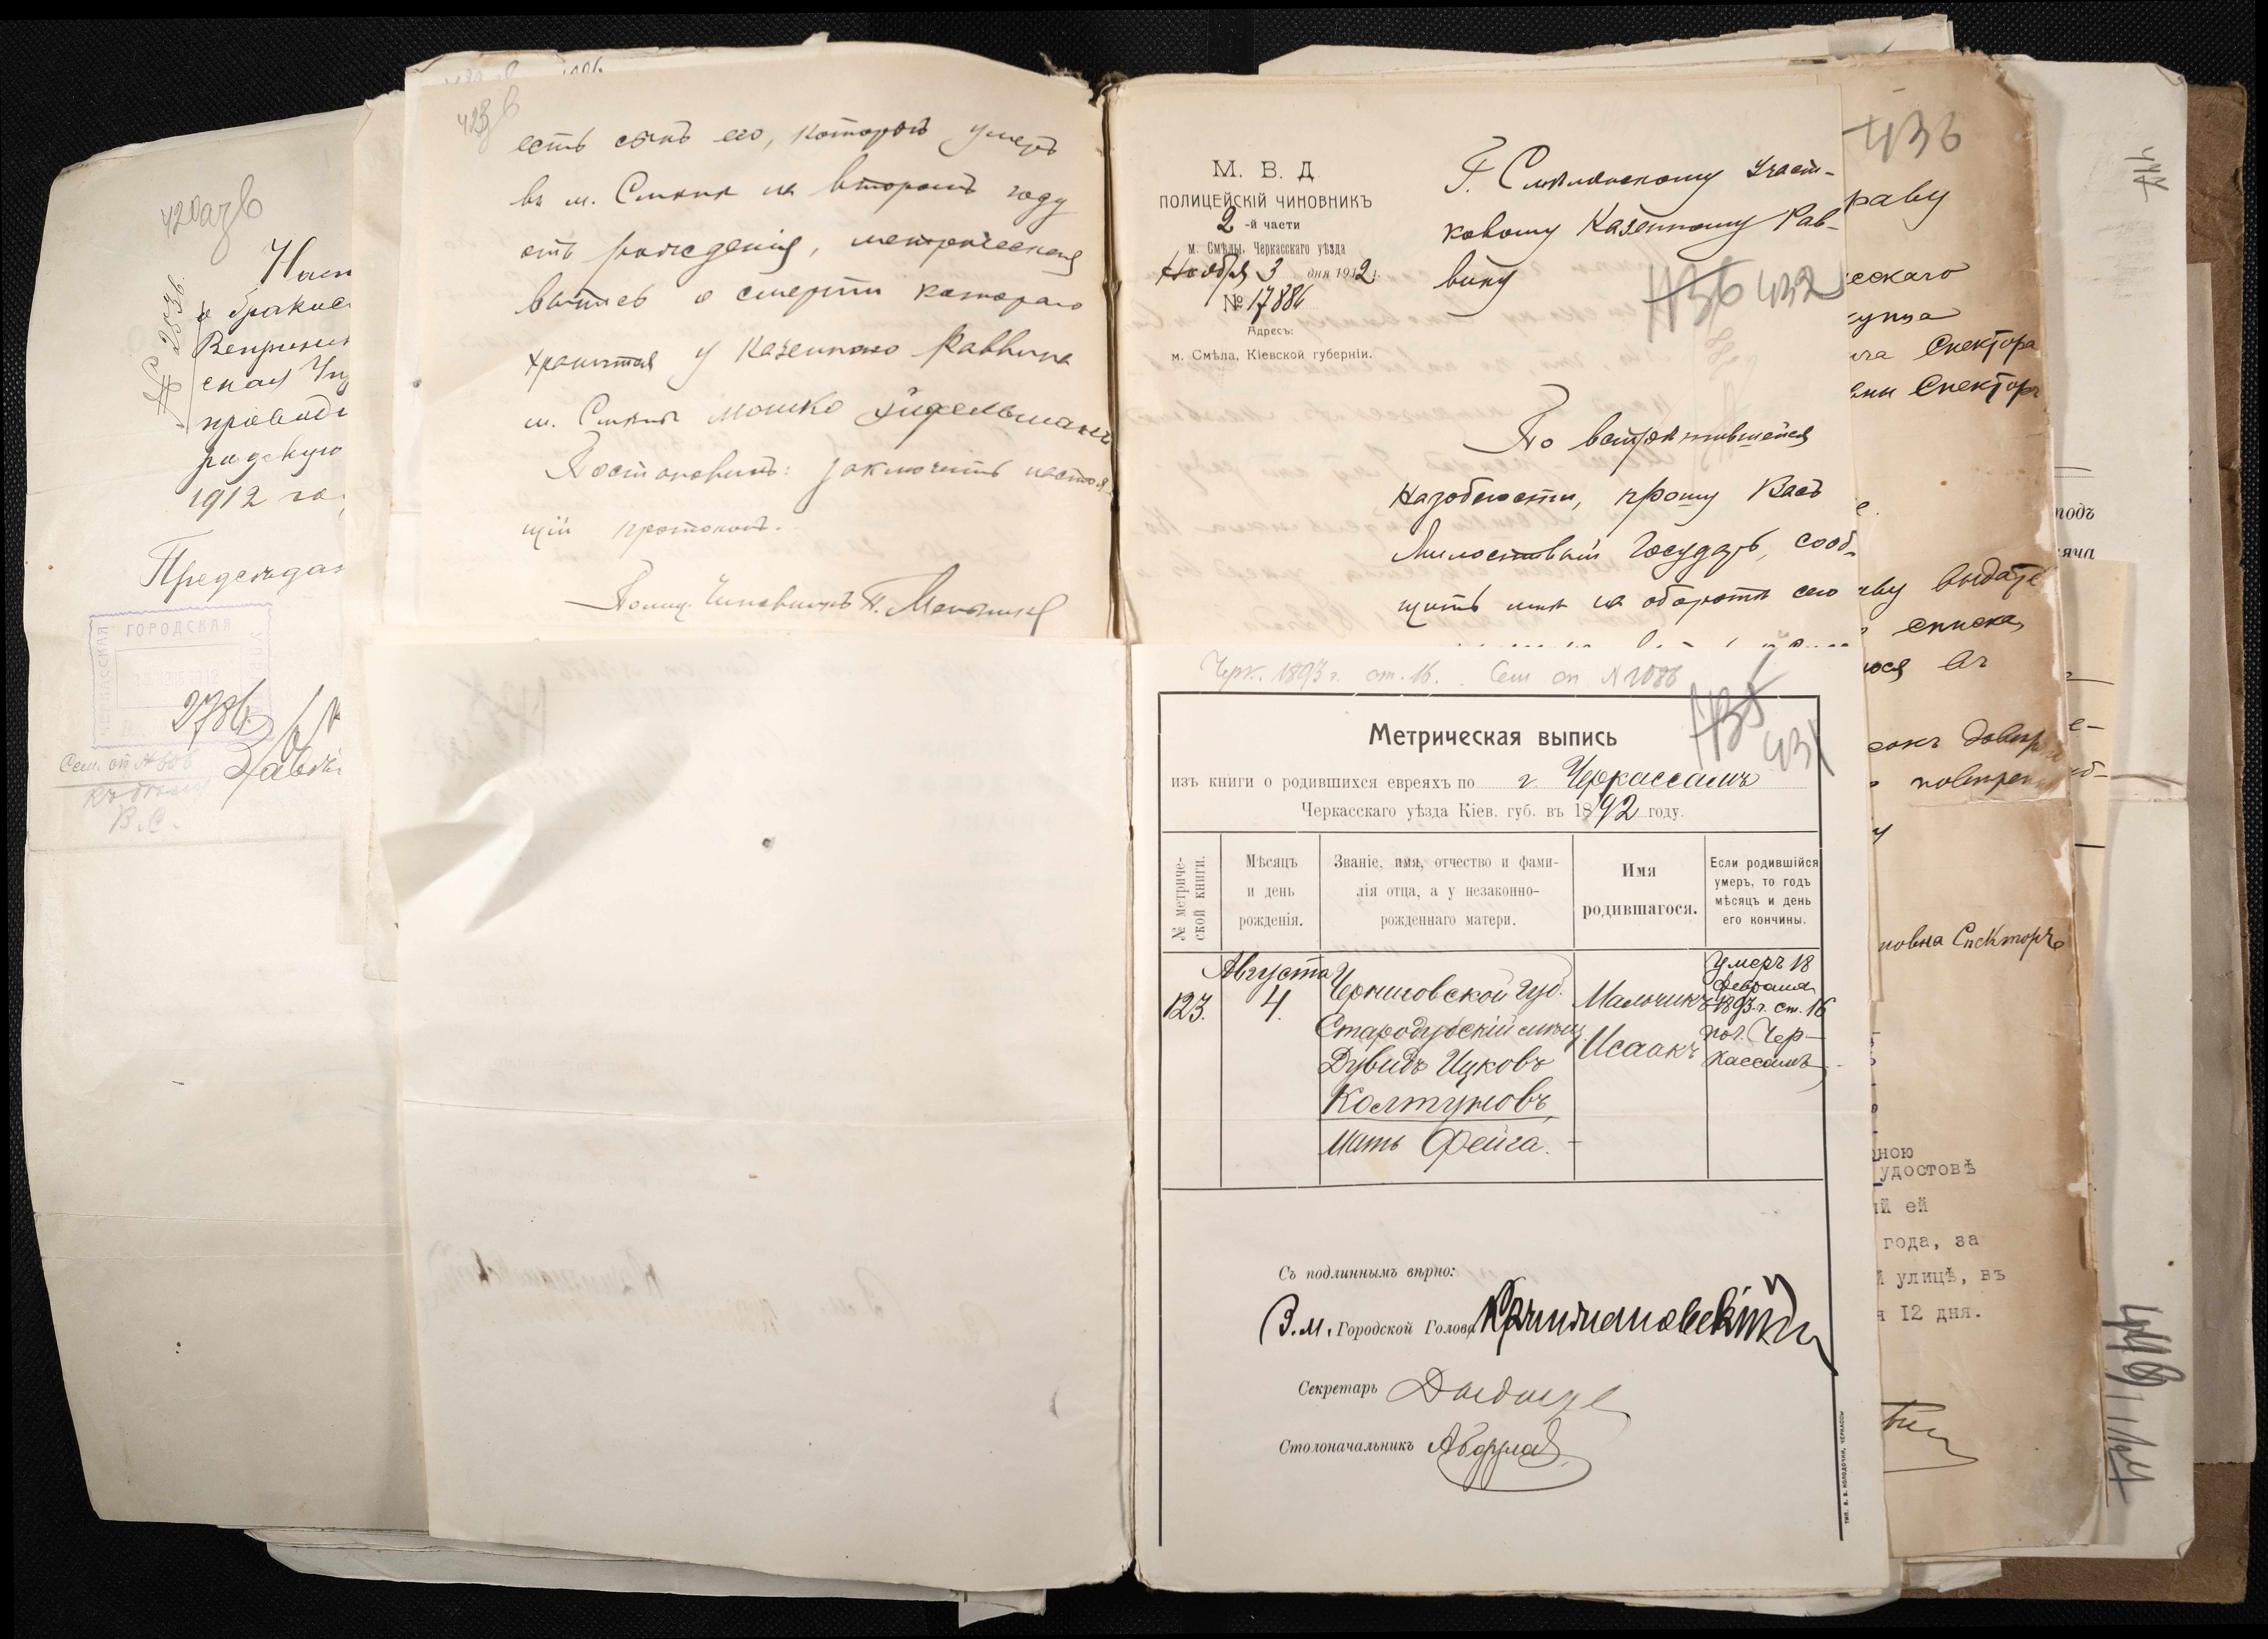 420 азв
№ 2836.
Наст
о бракос
1912 го
Председа
ГОРОДСКАЯ
ЧЕРКАССКАЯ
УПР
2786
Сем. оп № 806
В.С.
423 в
есть сынъ его, который умеръ
въ м. Смѣлѣ на второмъ году
отъ рожденія, метрическая
выпись о смерти котораго
хранится у Казеннаго Раввина
м. Смѣлы Мошко Эйдельмана
Постановилъ: заключить настоя-
щій протоколъ.
Полиц. Чиновникъ П.
М. В. Д
ПОЛИЦЕЙСКІЙ ЧИНОВНИКЪ
2 -й части
м. Смѣлы, Черкасскаго уѣзда
Ноября 3 дня 1912 г.
№ 17886
Адресъ:
м. Смѣла, Кіевской губерніи.
Г. Смѣлянскому Участ-
ковому Казенному Рав-
вину
436 432
По встрѣтившейся
надобности, прошу Васъ
Милостивый Государь, сооб-
щить мнѣ на оборотѣ сего
Черк. 1893 г. ст. 16. Сем оп № 2086
435
431
Метрическая выпись
изъ книги о родившихся евреяхъ по г. Черкассамъ
Черкасскаго уѣзда Кіев. губ. въ 1892 году.
№ метриче-
ской книги.
Мѣсяцъ
и день
рожденія.
Званіе, имя, отчество и фами-
лія отца, а у незаконно-
рожденнаго матери.
Имя
родившагося.
Если родившійся
умеръ, то годъ
мѣсяцъ и день
его кончины.
123.
Августа
4.
Черниговской губ.
Стародубскій мѣщ.
Дувидъ Ицковъ
Колтуновъ,
мать Фейга.
Мальчикъ
Исаакъ
Умеръ 18
февраля
1893 г. ст. 16
по г. Чер-
кассамъ
Съ подлиннымъ вѣрно:
З.м. Городской Голова
Секретарь
Столоначальникъ
ТИП. В. В. КОЛОДОЧКИ, ЧЕРКАССЫ
436
раву
ескаго
Спектора
Спекторъ
выдать
списка
въ
новна Спекторъ
ною
удостовѣ
ій ей
года, за
й улицѣ, въ
я 12 дня.
447
годъ
яча